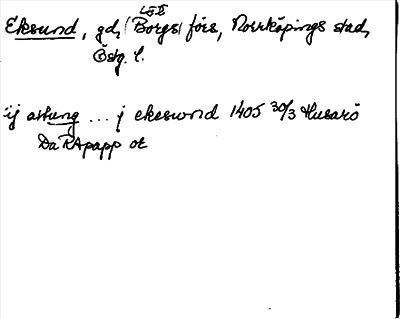 LSE
Eksund, gd, (Borgs) förs, Norrköpings stad,
Östg. l.
ij attung ... j ekeswnd 1405 30/3 Husarö
Da RApapp ot